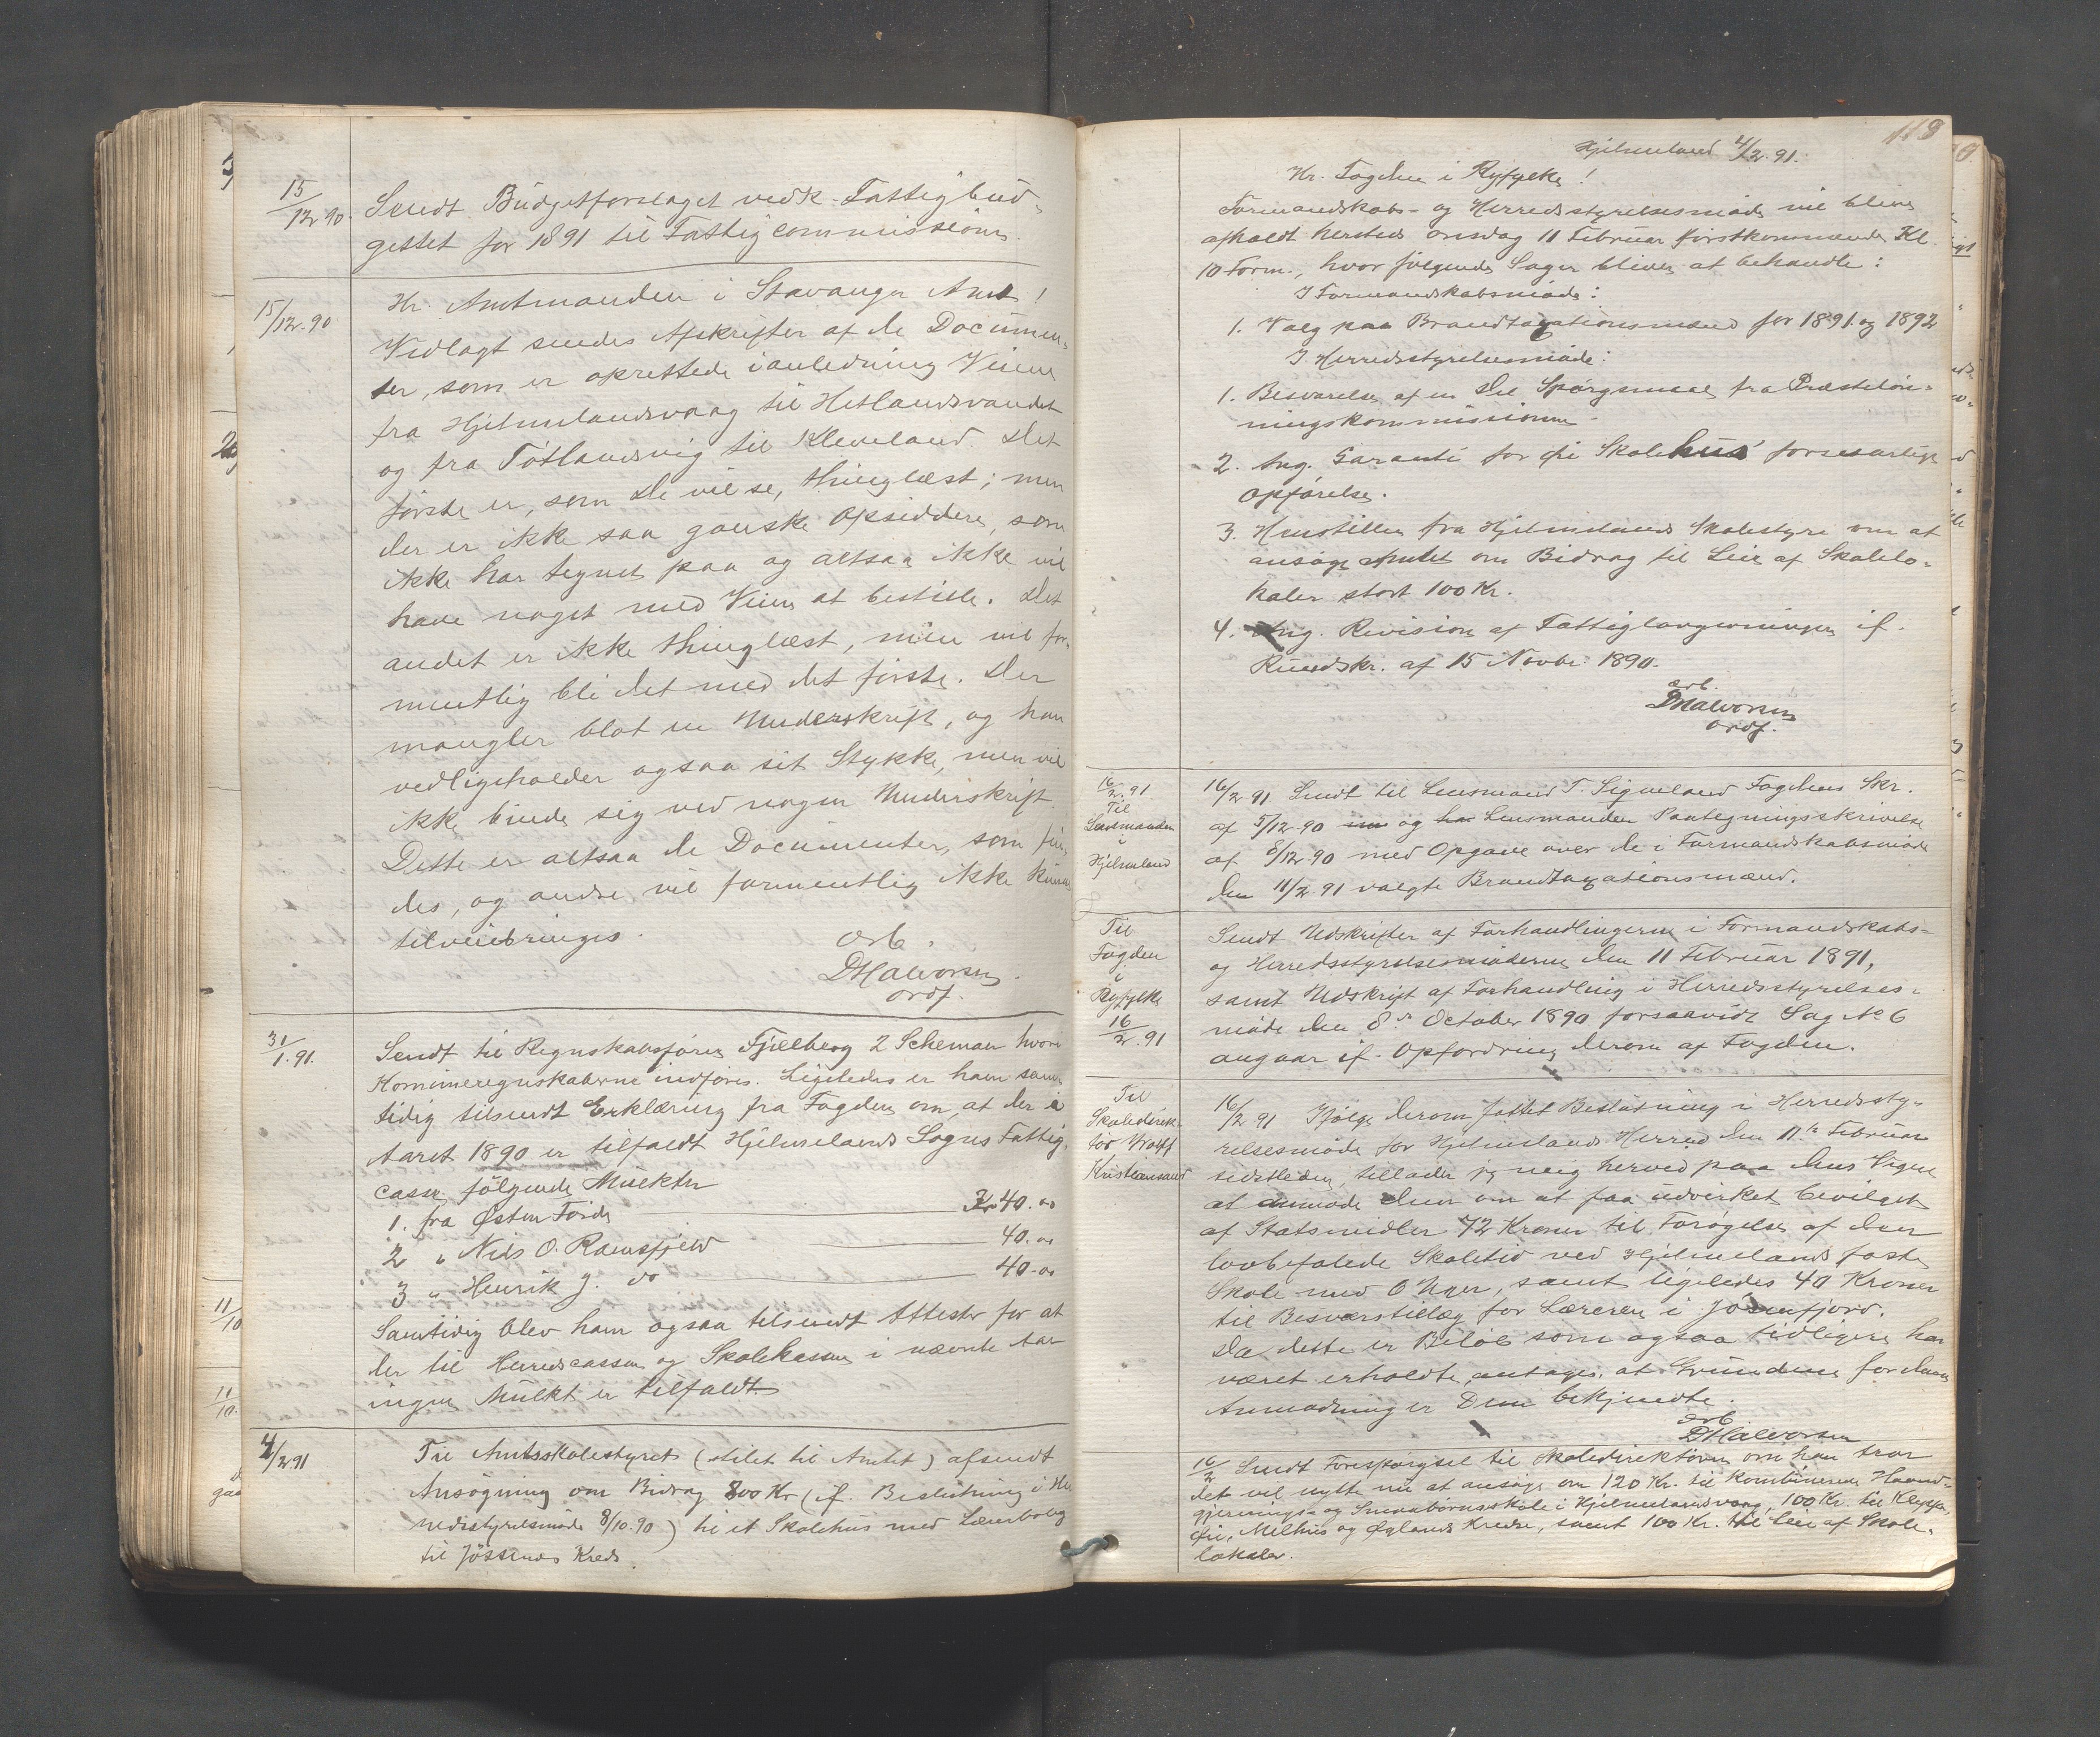 15/12 90.
Sendt Budgetforslaget vedk. Fattigbud-
gettet for 1891 til Fattigcommissionen.
15/12.90
Hr. Amtmanden i Stavanger Amt!
Vedlagt sendes Afskrifter af de Documen-
ter, som er oprettede i anledning Veiene
fra Hjelmelandsvaag til Hetlandsvandet
og fra Tøtlandsvig til Kleveland. Det
første er, som De vil se, thinglæst; men
der er ikke saa ganske Opsiddere, som
ikke har tegnet paa og altsaa ikke vil
have noget med Veien at bestille. Det
andet er ikke thinglæst, men vil for-
mentlig bli det med det første. Der
mangler blot en Underskrift, og han
vedligeholder ogsaa sit Stykke, men vil
ikke binde sig ved nogen Underskrift.
Dette er altsaa de Documenter, som fin-
des, og andre vil formentlig ikke kunne
tilveiebringes.
Ærb.
DHalvorsen
ordf.
31/1.91.
Sendt til Regnskabsfører Fjelberg 2 Schemaer hvori
Kommuneregnskaberne indføres. Ligeledes er ham sam-
tidig tilsendt Erklæring fra Fogden om, at der i
Aaret 1890 er tilfaldt Hjelmelands Sogns Fattig-
casse følgende Mulkter
1. fra Østen Førde Kr 40.00
2 " Nils O. Ramsfjeld 40.00
3 " Henrik J. do 40.00
Samtidig blev ham ogsaa tilsendt Attester for at
der til Herredscassen og Skolekassen i nævnte Aar
ingen Mulkt er tilfaldt.
4/2 91
Til Amtsskolestyret (stilet til Amtet) afsendt
Ansøgning om Bidrag 800 Kr (if. Beslutning i Her-
redsstyrelsesmøde 8/10.90) til et Skolehus med Lærerbolig
til Jøssenes Kreds.
118
Hjelmeland 4/2.91.
Hr. Fogden i Ryfylke!
Formandskabs- og Herredsstyrelsesmøde vil blive
afholdt hersteds onsdag 11 Februar førstkommende Kl
10 Form., hvor følgende Sager bliver at behandle:
I Formandskabsmøde:
1. Valg paa Brandtaxationsmænd for 1891 og 1892
I Herredsstyrelsesmøde:
1. Besvarelse af en Del Spørgsmaal fra Præsteløn-
ningskommissionen.
2. Ang. Garanti for Øie Skolehus' forsvarlige
Opførelse.
3. Henstillen fra Hjelmelands Skolestyre om at
ansøge Amtet om Bidrag til Leie af Skolelo-
kaler stort 100 Kr.
4. Ang. Revision af Fattiglovgivningen if.
Rundskr. af 15 Novbr. 1890.
ærb.
DHalvorsen
ordf.
16/2.91
Til
Lensmanden
i
Hjelmeland
16/2 91 Sendt til Lensmand T. Sigveland Fogdens Skr.
af 5/12 90 og Lensmanden Paategningsskrivelse
af 8/12 90 med Opgave over de i Formandskabsmøde
den 11/2 91 valgte Brandtaxationsmænd.
Til
Fogden
i
Ryfylke
16/2.91
Sendt Udskrifter af Forhandlingerne i Formandskabs-
og Herredsstyrelsesmøderne den 11 Februar 1891,
samt Udskrift af Forhandling i Herredsstyrelses-
møde den 8de October 1890 forsaavidt Sag No 6
angaar if. Opfordring derom af Fogden.
Til
Skoledirek-
tør
Kristiansand
16/2 91 Ifølge derom fattet Beslutning i Herredssty-
relsesmøde for Hjelmelands Herred den 11te Februar
sidstleden, tillader jeg mig herved paa dens Vegne
at anmode Dem om at faa udvirket bevilget
af Statsmidler 72 Kroner til Forøgelse af den
lovbefalede Skoletid ved Hjelmelands faste
Skole med 6 Uger, samt ligeledes 40 Kroner
til Besværstillæg for Læreren i Jøsenfjord.
Da dette er Beløb som ogsaa tidligere har
været erholdte, antages, at Grundene for denne
Anmodning er Dem bekjendte.
Ærb
DHalvorsen
16/2 Sendt Forespørgsel til Skoledirektøren om han tror
det vil nytte nu at ansøge om 120 Kr. til kombineret Haand-
gjernings- og Smaabørnsskole i Hjelmelandsvaag, 100 Kr. til Kleppe,
Øie, Melhus og Øglænds Kredse, samt 100 Kr. til Leie af Skole-
lokaler.